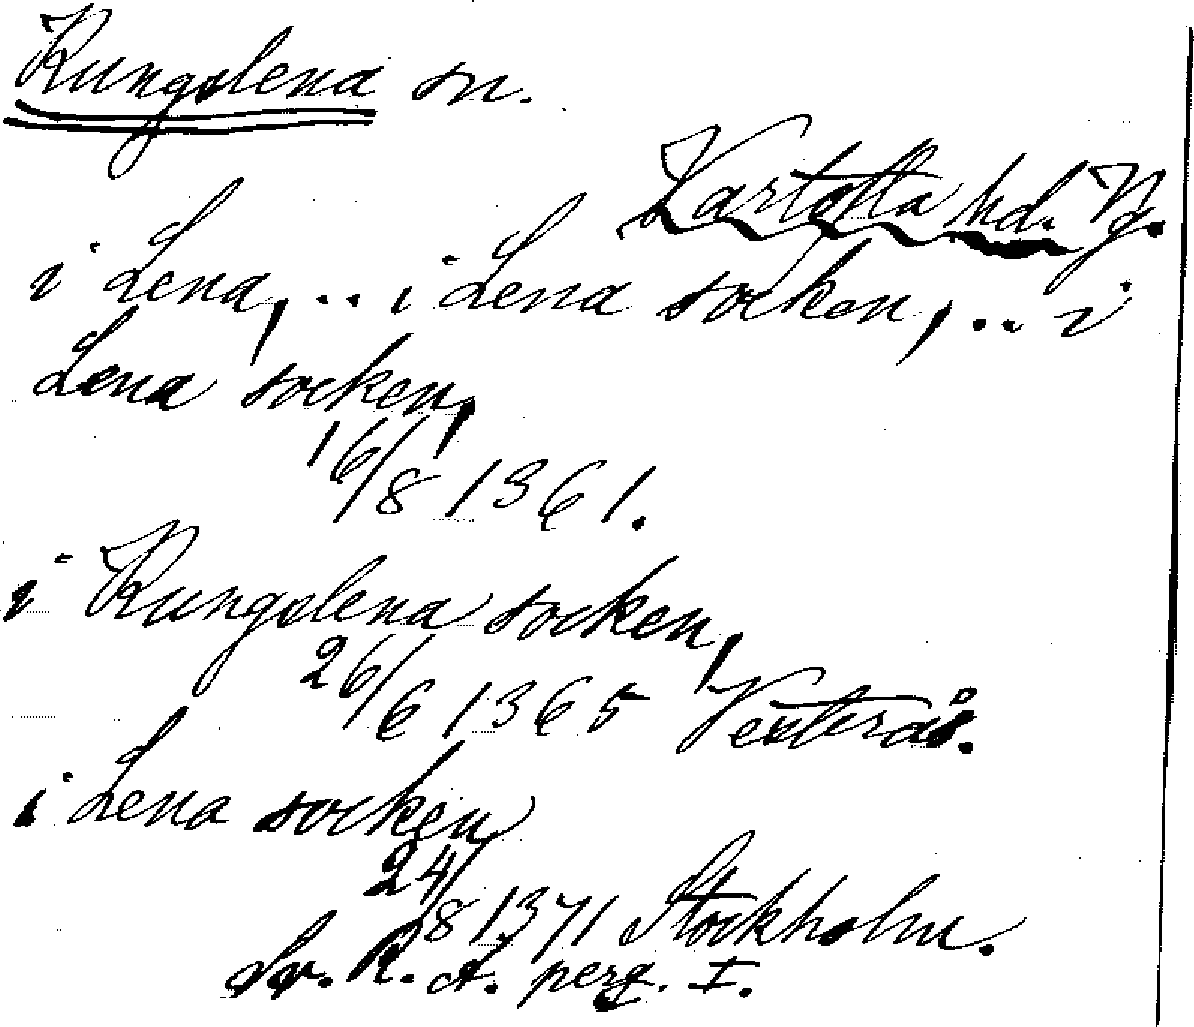 Kungslena sn.
Kartofta hd. Vg.
i Lena, .. i Lena socken, .. i
Lena socken,
16/8 1361.
i Kungslena socken,
26/6 1365 Vesterås.
i Lena socken
24/8 1371 Stockholm.
Sv. R. A. perg. I.